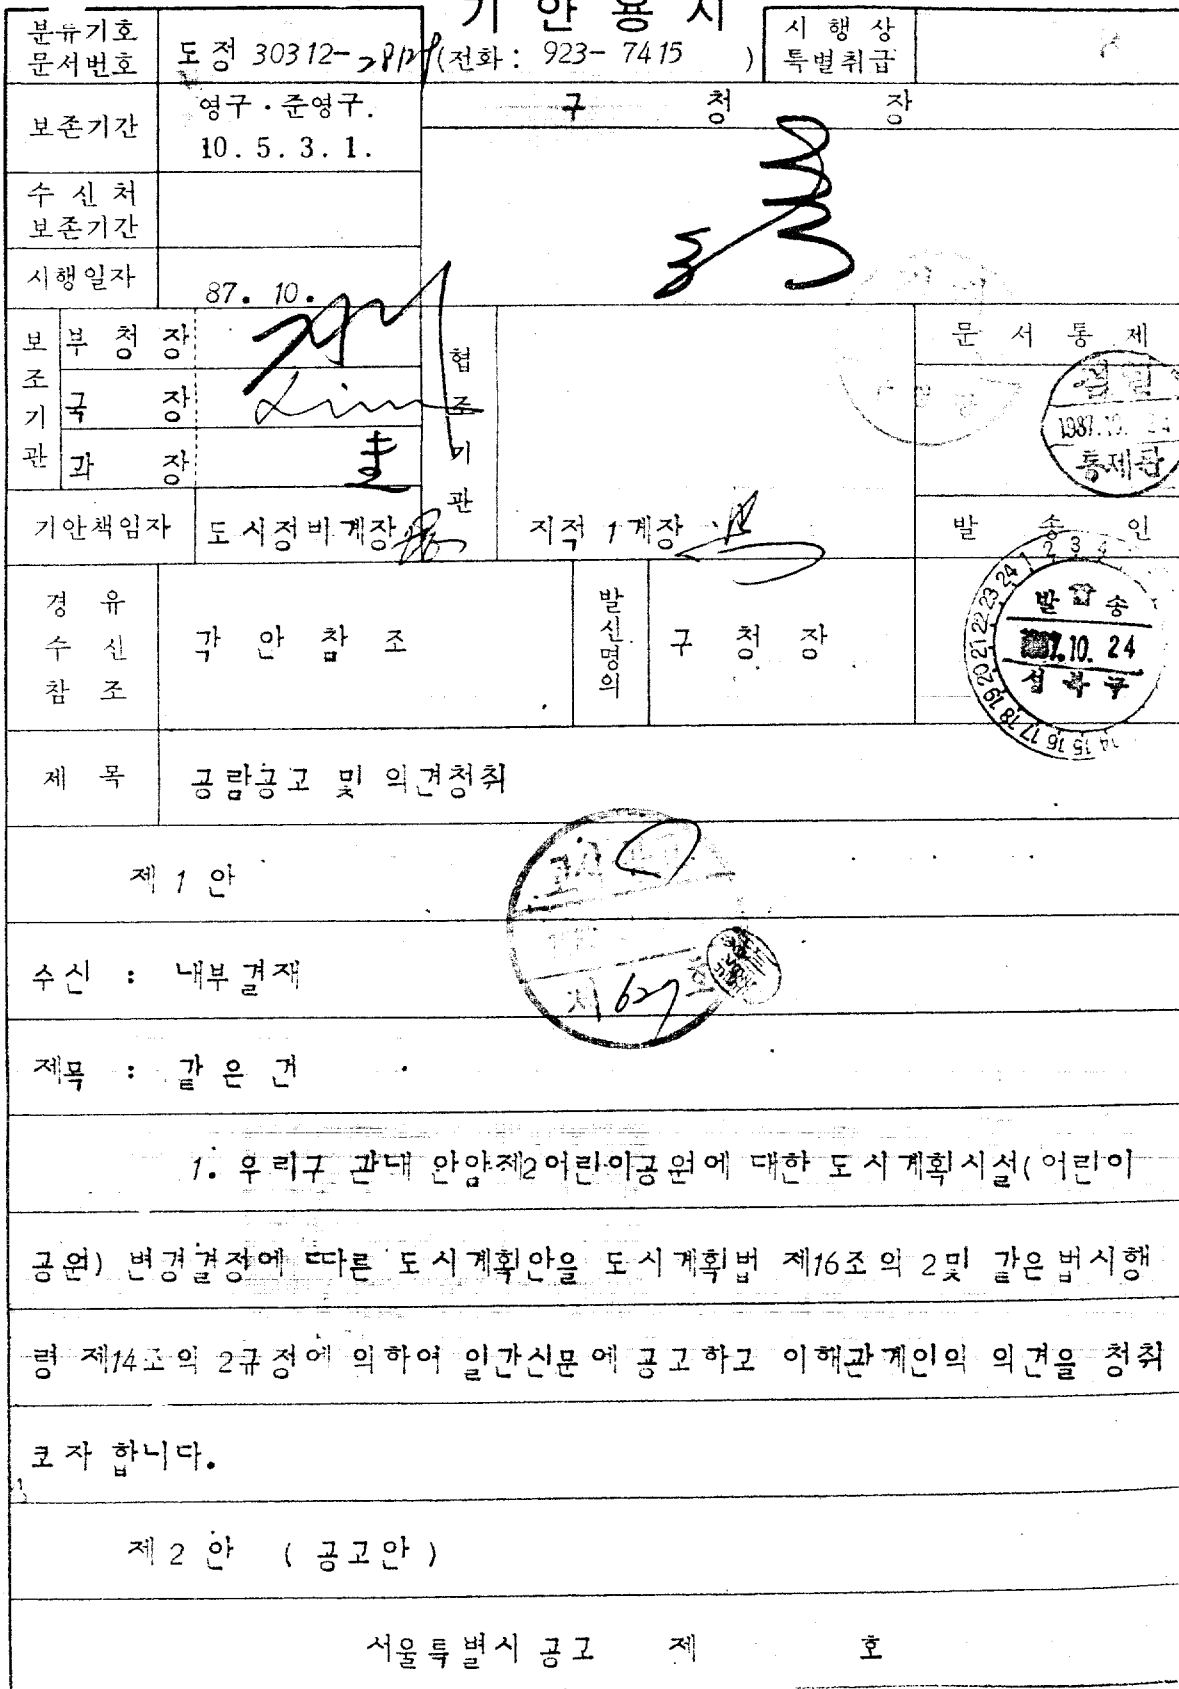 기 안 용 지
분류기호
문서번호
도정 30312-
(전화 : 923-7415 )
시 행 상
특별취급
보존기간
영구·준영구.
10. 5. 3. 1.
구 청 장
수 신 처
보존기간
시행일자
87. 10.
보조기관
부 청 장
국 장
Lim
과 장
협조기관
문 서 통 제
1987.10. 24
통제관
기안책임자
도시정비계장
지적 1계장
발 송 인
경 유
수 신
참 조
각 안 참 조
발신명의
구 청 장
발 송
10. 24
성북구
제 목
공람공고 및 의견청취
제 1 안
제 627 호
수신 : 내부결재
제목 : 같은 건
1. 우리구 관내 안암제2어린이공원에 대한 도시계획시설(어린이
공원) 변경결정에 따른 도시계획안을 도시계획법 제16조의 2및 같은법시행
령 제14조의 2규정에 의하여 일간신문에 공고하고 이해관계인의 의견을 청취
코자 합니다.
제 2 안 ( 공고안 )
서울특별시 공고 제 호